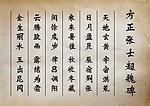 方正张士超魏碑
天地玄黄 宇宙洪荒
日月盈昃 辰宿列张
寒来暑往 秋收冬藏
闰余成岁 律吕调阳
云腾致雨 露结为霜
金生丽水 玉出昆冈